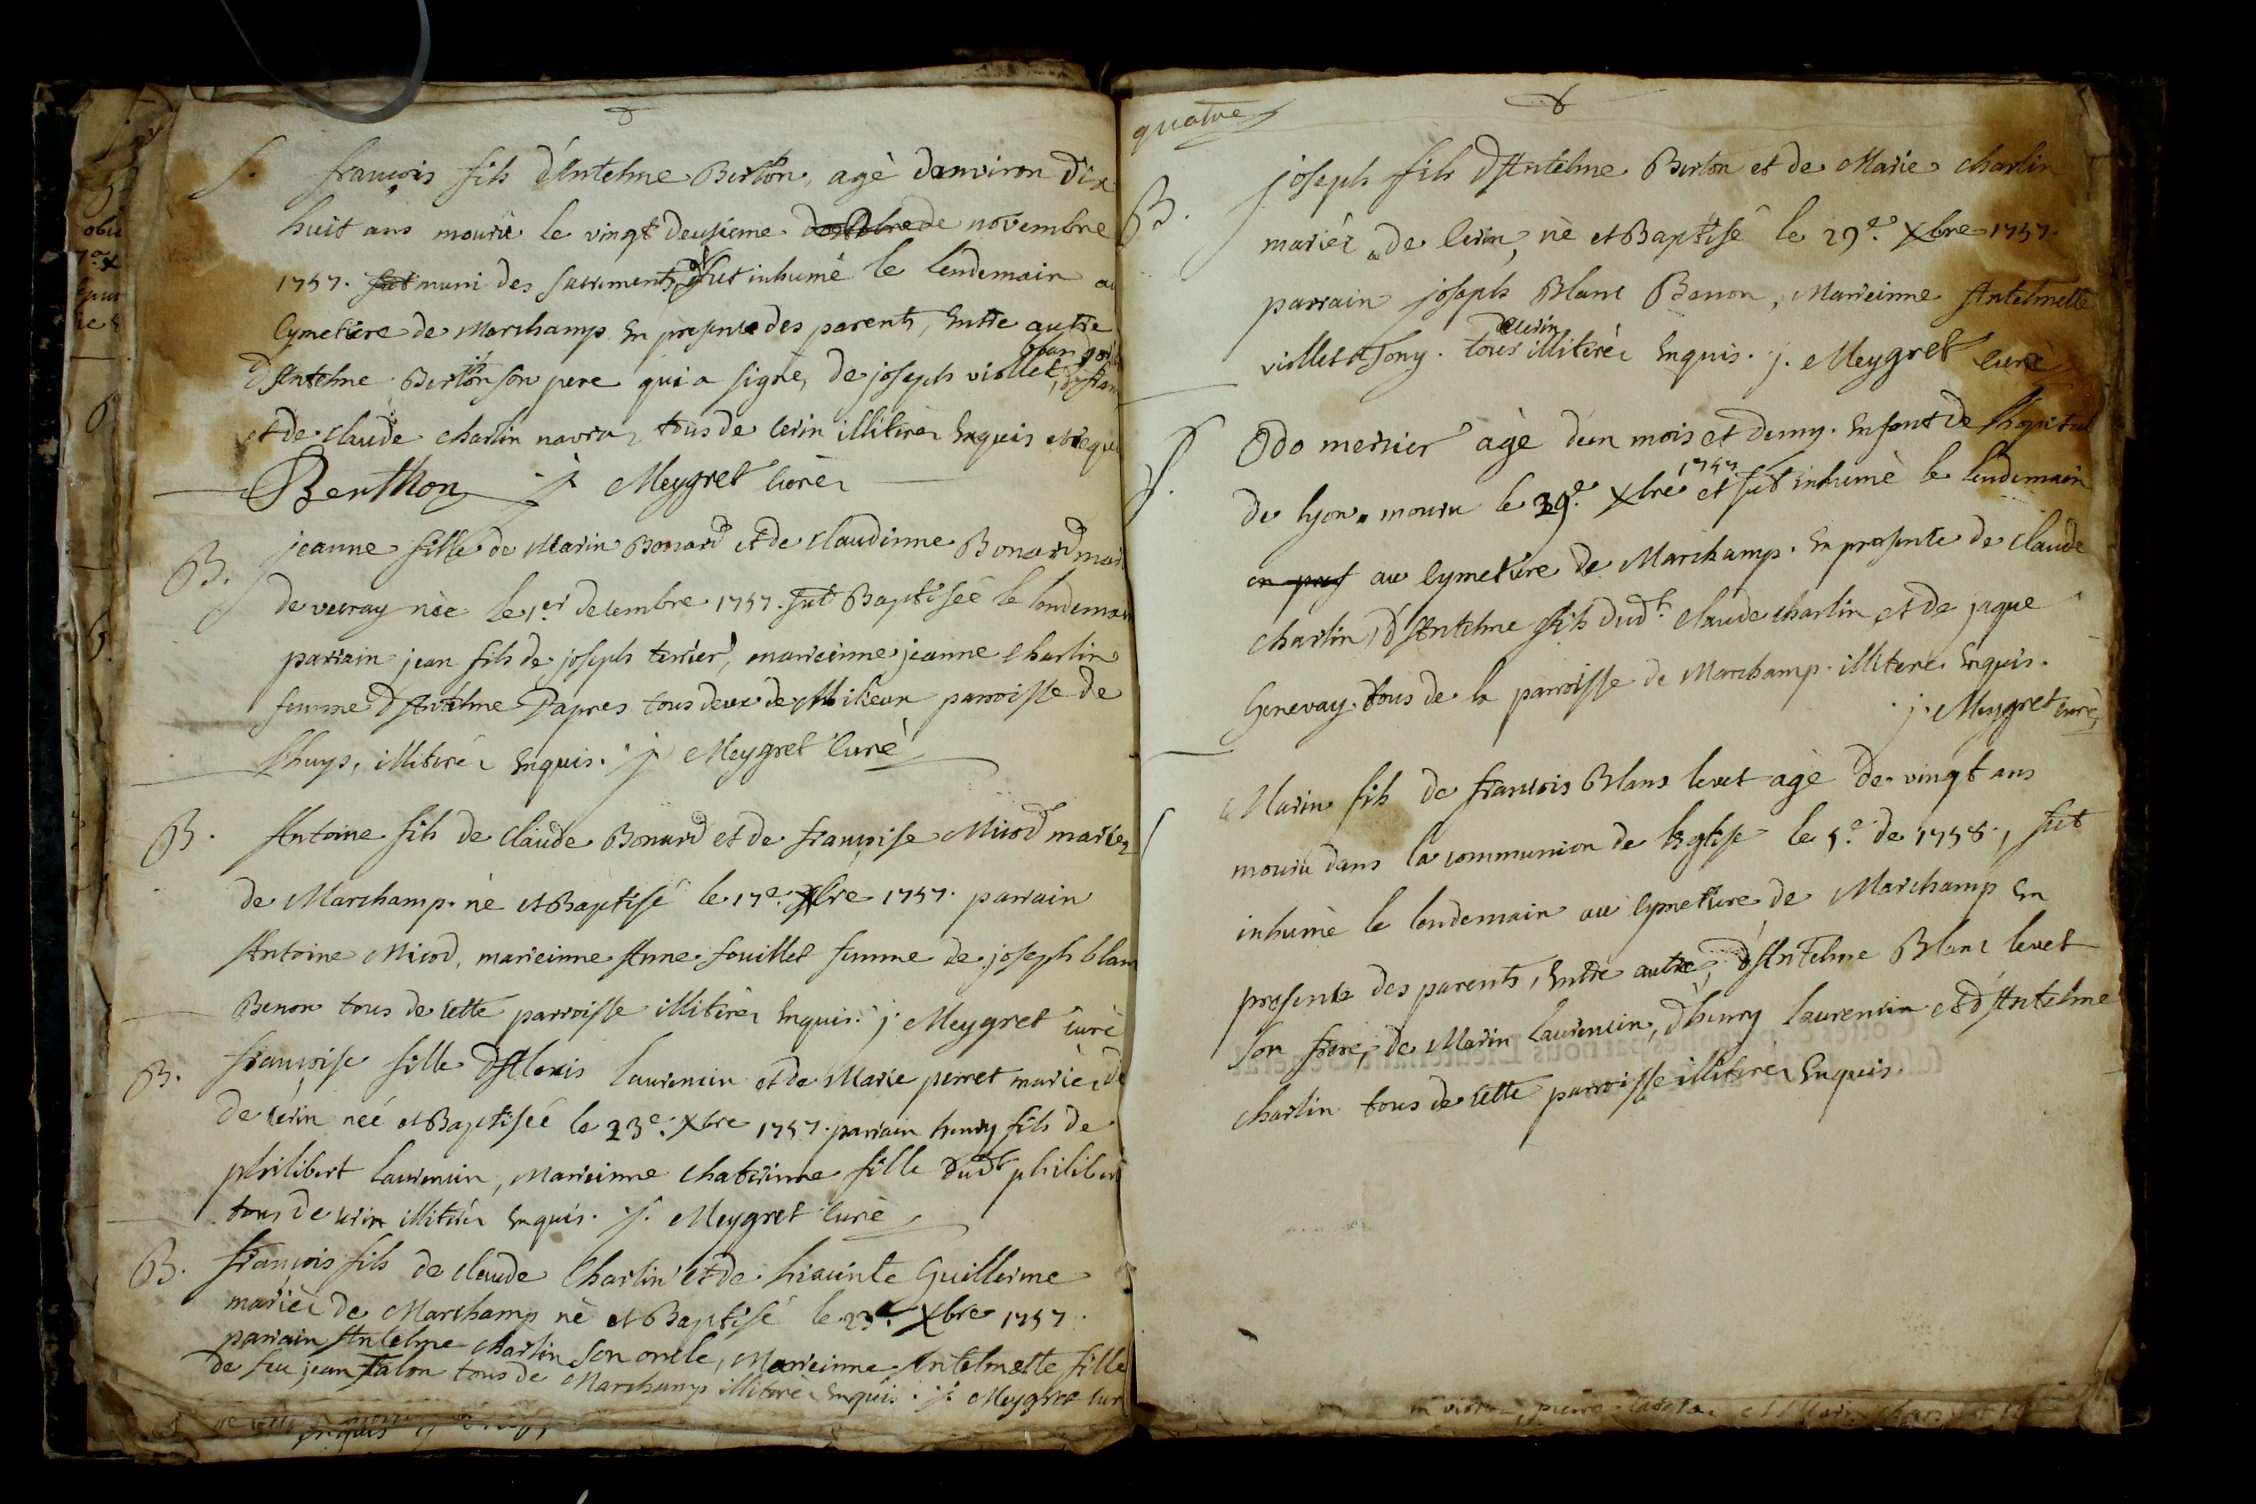 S. françois fils d'Antelme Berton, agè danviron dix
huit ans mouru le vingt deusieme de novembre
1757. muni des sacrements, et fut inhumè le lendemain au
Cymetiere de Marchamp En presence des parents, Entre autre
d'Antelme Berton son pere qui a signè, de joseph viollet,
et de claude charlin navroz tous de Cerin illiterez Enquis et requis
Berthon j Meygret Curè
B. jeanne fille de Marin Bonard et de Claudinne Bonard mariez
de vercray nèe le 1er decembre 1757. fut Baptiséè le lendemain
parrain jean fils de joseph terrier, marreinne jeanne Charlin
femme d'Antelme Dapres tous deux de Millieur parroisse de
Lhuys, illiterèz Enquis. j Meygret Curè
B. Antoine fils de claude Bonard et de françoise Micod mariez
de Marchamp. nè et Baptisé le 17e. Xbre 1757. parrain
Antoine Micod, marreinne Anne fouillet femme de joseph blanc
Benon tous de cette parroisse illiterèz Enquis. j. Meygret Curè
B. françoise fille d'Alexis laurencin et de Marie perret marièz de
de Cerin néé et Baptiséé le 23e. Xbre 1757. parrain henry fils de
philibert laurencin, Marreinne Chaterinne fille dudt philibert
tous de Cerin illiteréz Enquis. j. Meygret Curè
B. françois fils de claude Charlin et de hiacinte Guillerme
marièz de Marchamp nè et Baptisé le 23e. Xbre 1757.
parrain Antelme charlin son oncle, Marreinne Antelmette fille
de feu jean Talon tous de Marchamp illiterèz Enquis. j. Meygret Cur
Enquis
quatre
B. joseph fils d'Antelme Berton et de Marie charlin
mariéz de Cerin, nè et Baptisé le 29e. Xbre 1757.
parrain joseph Blanc Benon, Marreinne Antelmette
viollet tony. de Cerin tous illiteréz Enquis. j. Meygret Curè
S. Odo mersier àgè d'un mois et demy. Enfant de Lhopital
de lyon. mouru le 29e. Xbre 1757 et fut inhumè le lendemain
au Cymetiere de Marchamp. En presente de claude
charlin, d'Antelme fils dudt. Claude charlin et de jaque
Genevay. tous de la parroisse de Marchamp. illiterez Enquis.
j. Meygret Curè,
S Marin fils de francois Blanc levet agè de vingt ans
mouru dans la communion de lEglise le 5e. de 1758, fut
inhumè le lendemain au Cymetiere de Marchamp En
presente des parents, Entre autre, d'Antelme Blanc levet
son frere, de Marin laurencin, d'henry laurencin et d'Antelme
charlin tous de cette parroisse illiterèz Enquis.